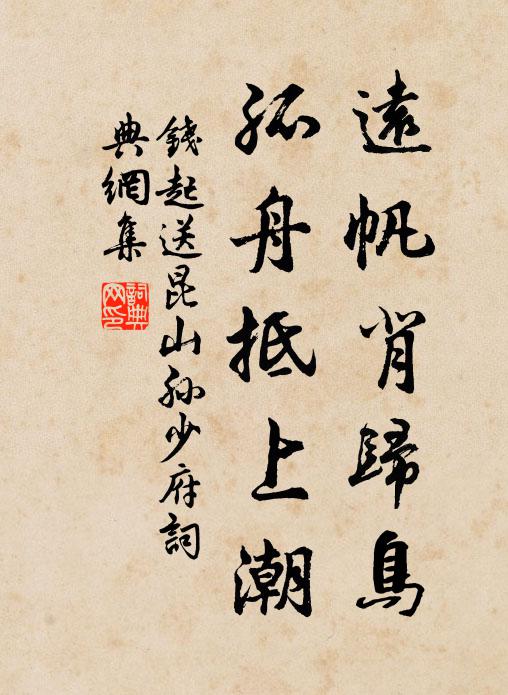 遠帆背歸鳥
孤舟抵上潮
錢起送昆山孫少府詞
典網集
詞典網印